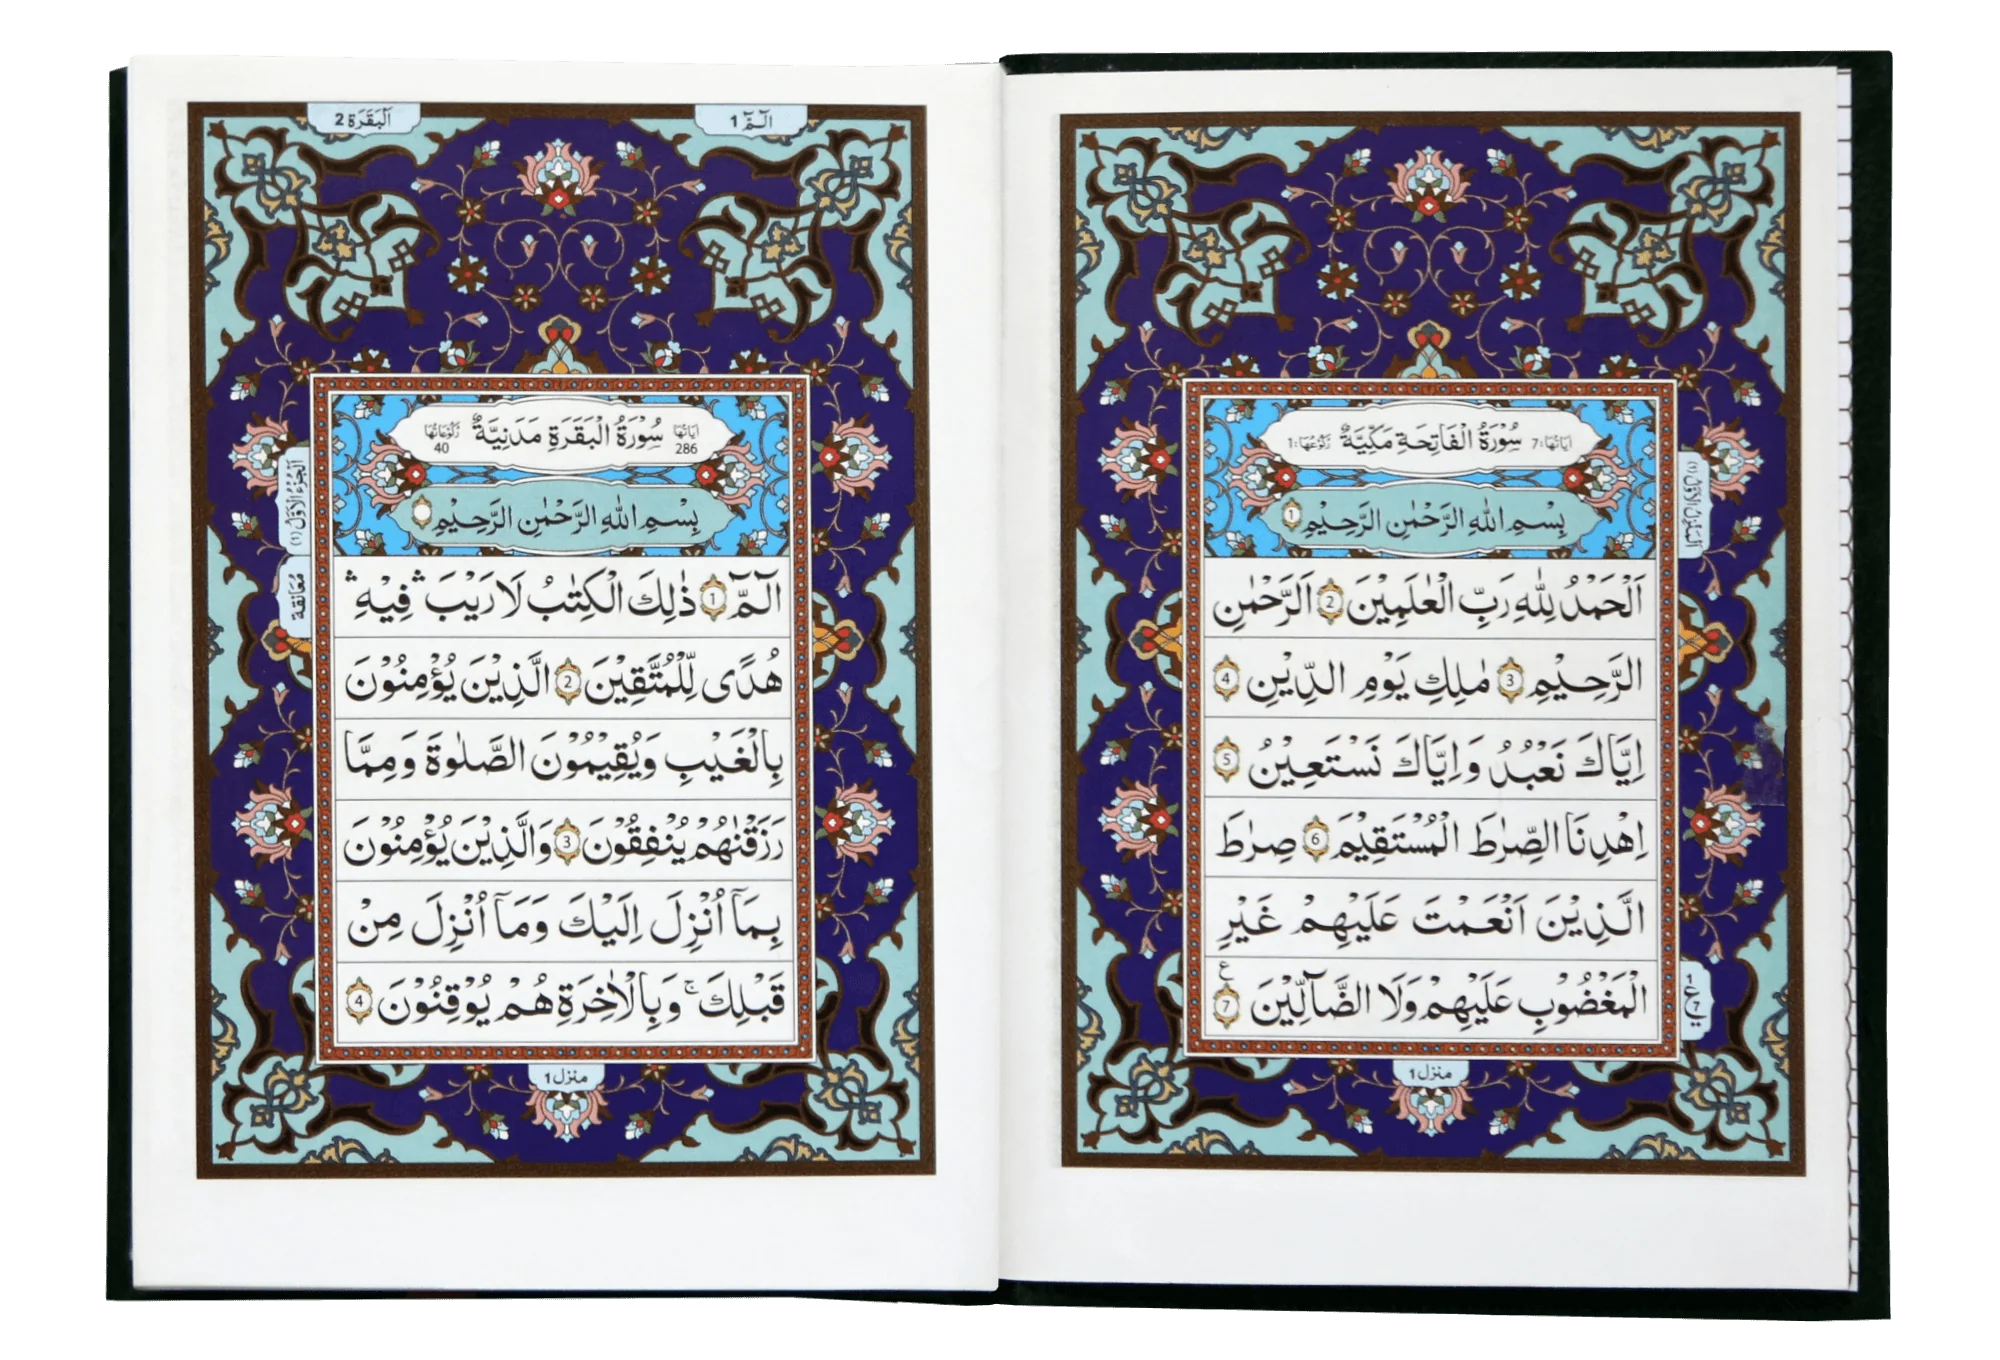 سُوْرَةُ الْفَاتِحَةِ مَكِّيَّةٌ
اٰيَاتُهَا:7 رُكُوْعُهَا:1
بِسْمِ اللهِ الرَّحْمٰنِ الرَّحِيْمِ 1
اَلْحَمْدُ لِلّٰهِ رَبِّ الْعٰلَمِيْنَ 2 الرَّحْمٰنِ
الرَّحِيْمِ 3 مٰلِكِ يَوْمِ الدِّيْنِ 4
اِيَّاكَ نَعْبُدُ وَاِيَّاكَ نَسْتَعِيْنُ 5
اِهْدِنَا الصِّرٰطَ الْمُسْتَقِيْمَ 6 صِرٰطَ
الَّذِيْنَ اَنْعَمْتَ عَلَيْهِمْ غَيْرِ
الْمَغْضُوْبِ عَلَيْهِمْ وَلَا الضَّآلِّيْنَ 7 ع
منزل 1
الٓمّٓ 1
اَلْبَقَرَة 2
سُوْرَةُ الْبَقَرَةِ مَدَنِيَّةٌ
اٰيَاتُهَا 286
رُكُوْعَاتُهَا 40
بِسْمِ اللهِ الرَّحْمٰنِ الرَّحِيْمِ
الٓمّٓ 1 ذٰلِكَ الْكِتٰبُ لَا رَيْبَ ۛ فِيْهِ ۛ
هُدًى لِّلْمُتَّقِيْنَ 2 الَّذِيْنَ يُؤْمِنُوْنَ
بِالْغَيْبِ وَيُقِيْمُوْنَ الصَّلٰوةَ وَمِمَّا
رَزَقْنٰهُمْ يُنْفِقُوْنَ 3 وَالَّذِيْنَ يُؤْمِنُوْنَ
بِمَآ اُنْزِلَ اِلَيْكَ وَمَآ اُنْزِلَ مِنْ
قَبْلِكَ ۚ وَبِالْاٰخِرَةِ هُمْ يُوْقِنُوْنَ 4
اَلْجُزْءُ الْاَوَّلُ (١)
مُعَانقة
منزل 1